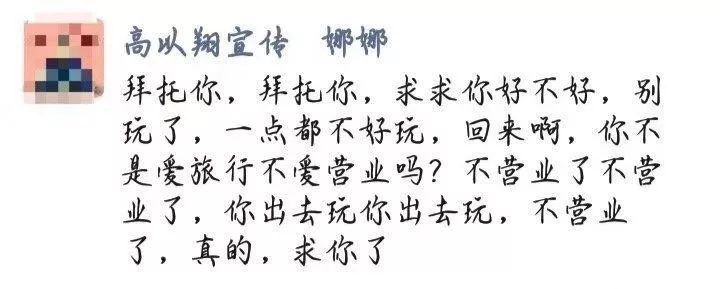 高以翔宣传 娜娜
拜托你，拜托你，求求你好不好，别
玩了，一点都不好玩，回来啊，你不
是爱旅行不爱营业吗？不营业了不营
业了，你出去玩你出去玩，不营业
了，真的，求你了